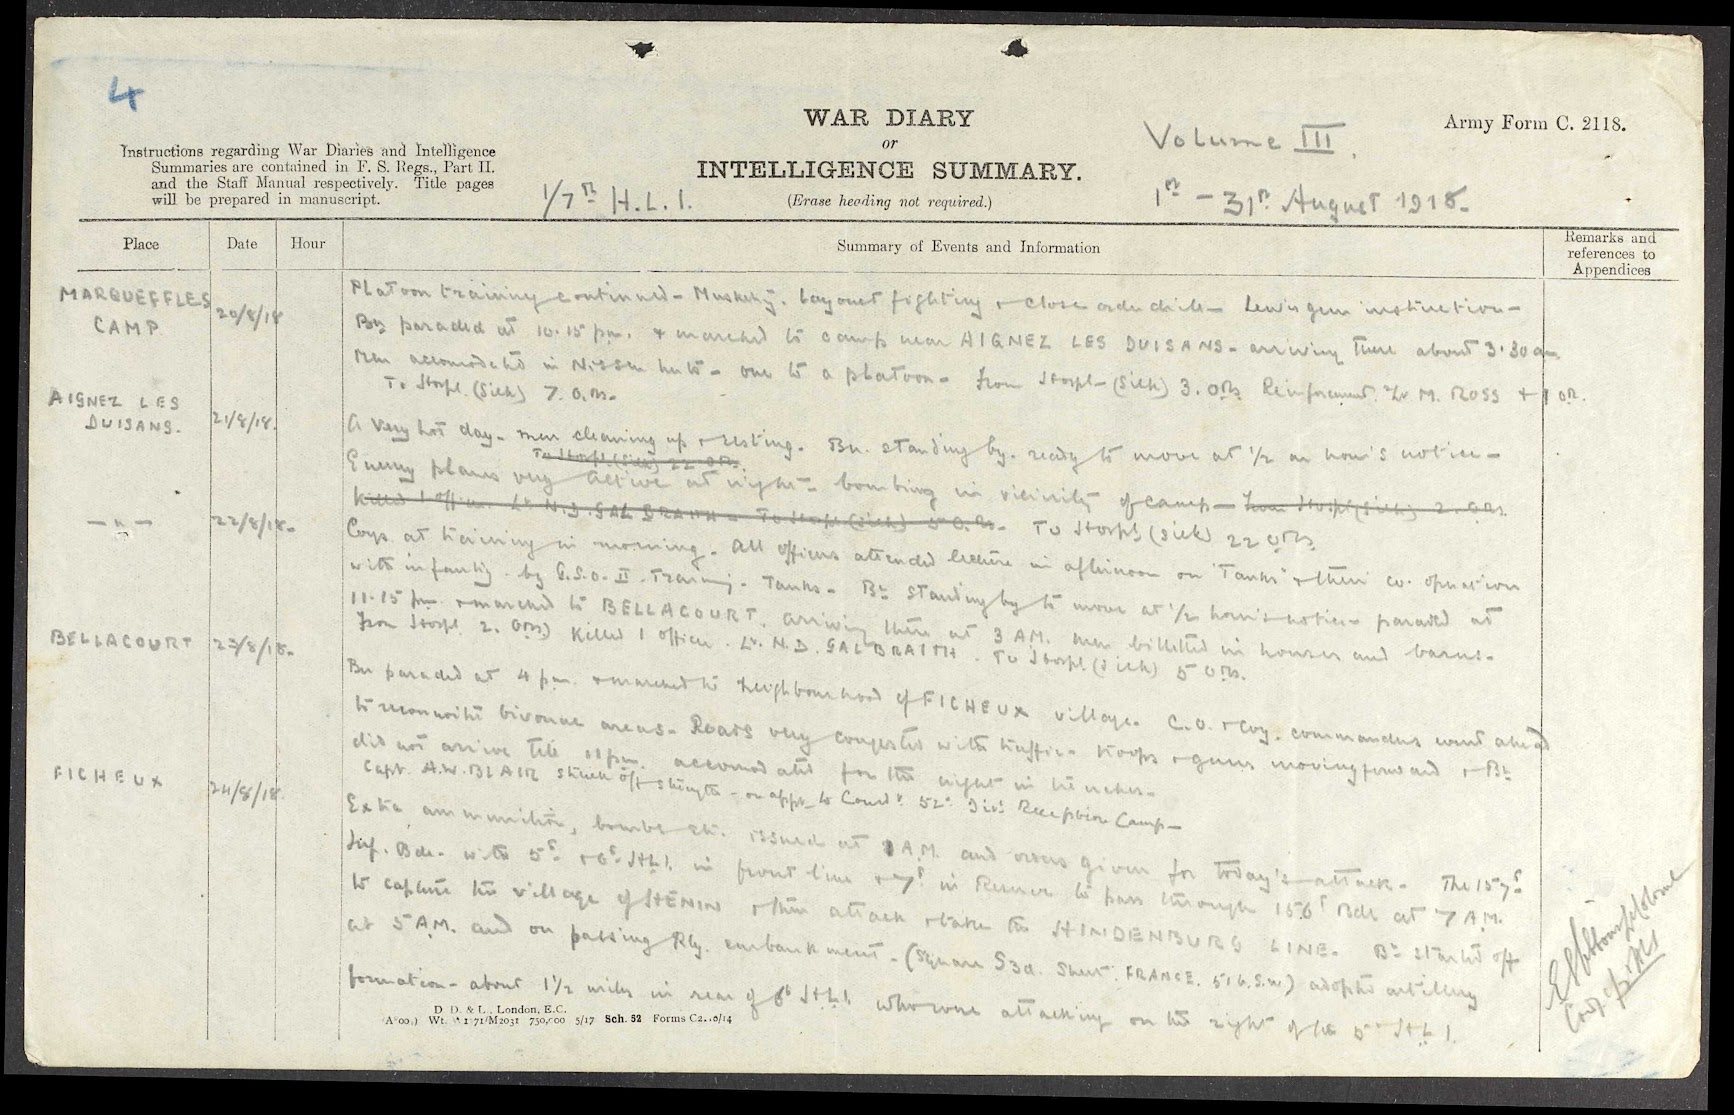 4
WAR DIARY
or
INTELLIGENCE SUMMARY.
(Erase heading not required.)
Army Form C. 2118.
Instructions regarding War Diaries and Intelligence
Summaries are contained in F. S. Regs., Part II.
and the Staff Manual respectively. Title pages
will be prepared in manuscript.
1/7th H.L.I.
Volume III.
1st - 31st August 1918.
Place Date Hour Summary of Events and Information Remarks and references to Appendices
MARQUEFFLES CAMP 20/8/18
Platoon training continued - Musketry, bayonet fighting & close order drill - Lewis gun instruction -
Bn paraded at 10.15 pm. & marched to camp near AIGNEZ LES DUISANS - arriving there about 3.30 am.
Men accomodated in Nissen huts - one to a platoon - From Hospl - (Sick) 3. ORs Reinforcement Lt M. ROSS + 1 OR.
To Hospl. (Sick) 7. O.Rs.
AIGNEZ LES DUISANS. 21/8/18.
A very hot day - men cleaning up & resting. Bn. standing by - ready to move at 1/2 an hour's notice -
To Hospl. (Sick) 22 ORs.
Enemy planes very active at night - bombing in vicinity of camp - From Hospl (Sick) 2. ORs
Killed 1 officer Lt. N.D. GALBRAITH - To Hospl (Sick) 5 O.Rs. To Hospl (Sick) 22 ORs.
- " - 22/8/18.
Coys. at training in morning. All officers attended lecture in afternoon on "Tanks" & their co. operation
with infantry - by G.S.O. II. Training. Tanks - Bn standing by to move at 1/2 hour's notice - paraded at
11.15 pm & marched to BELLACOURT, arriving there at 3 AM. men billeted in houses and barns -
From Hospl 2. ORs) Killed 1 officer. Lt. N.D. GALBRAITH. To Hospl (Sick) 5 ORs.
BELLACOURT 23/8/18.
Bn paraded at 4 pm. & marched to neighbourhood of FICHEUX village. C.O. & Coy. commanders went ahead
to reconnoitre bivouac areas. Roads very congested with traffic - troops & guns moving forward & Bn
did not arrive till 11 pm. accomodated for the night in trenches -
Capt. A.W. BLAIR struck off strength - on appt. to Comd: 52nd Divl Reception Camp -
FICHEUX 24/8/18.
Extra ammunition, bombs etc. issued at 1 A.M. and orders given for today's attack. The 157th
Inf. Bde. with 5th & 6th H.L.I. in front line & 7th in Reserve to pass through 156th Bde at 7 A.M.
to capture the village of HENIN & then attack & take the HINDENBURG LINE. Bn started off
at 5 A.M. and on passing Rly. embankment - (Square S3d. Sheet FRANCE. 51b. S.W.) adopted artillery
formation - about 1 1/2 miles in rear of 6th H.L.I. who were attacking on the right of the 5th H.L.I.
D. D. & L., London, E.C.
Wt. 750,000 5/17 Sch. 52 Forms